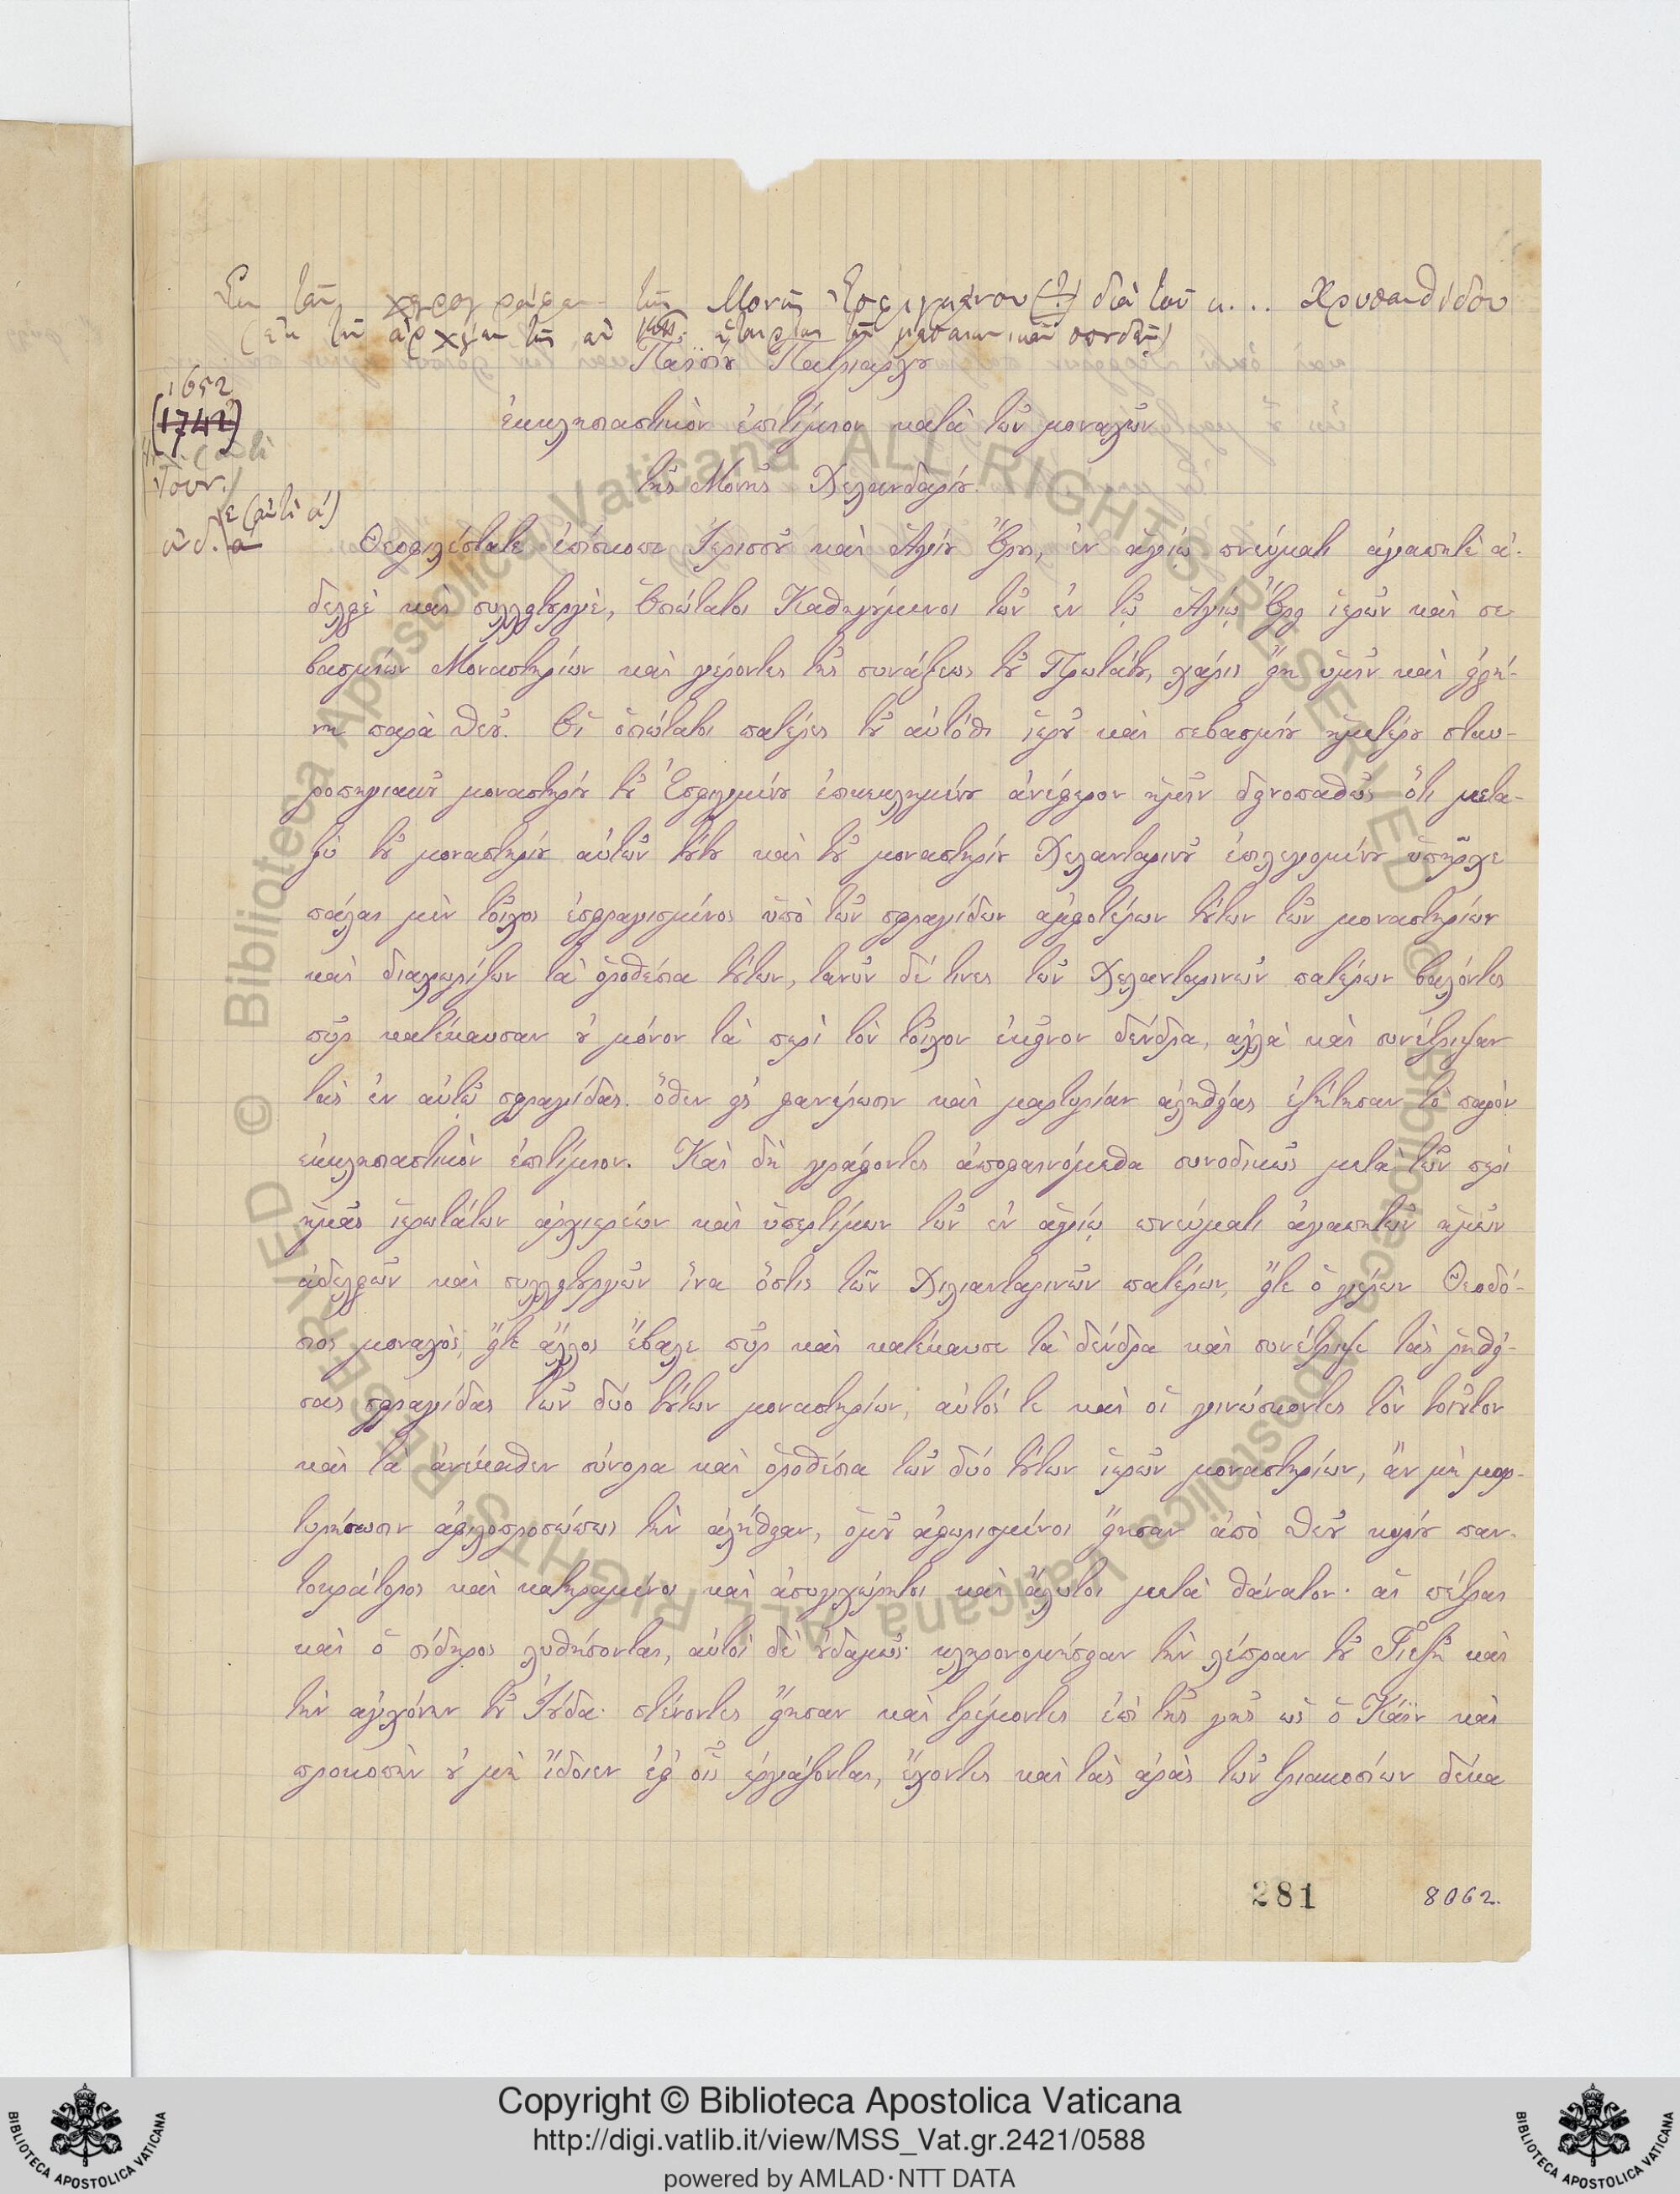 Ἐκ τῶν χειρογράφων τῆς Μονῆς Ἐσφιγμένου (?) διὰ τοῦ κ... Χρυσανθίδου
Παϊσίου Πατριάρχου
1652
(1742)
ἐκκλησιαστικὸν ἐπιτίμιον κατὰ τῶν μοναχῶν
τῆς Μονῆς Χελανδαρίου.
ε (ἀντὶ α)
ἰνδ. α
Θεοφιλέστατε ἐπίσκοπε Ἱερισσοῦ καὶ Ἁγίου Ὄρους, ἐν ἁγίῳ πνεύματι ἀγαπητὲ ἀ-
δελφὲ καὶ συλλειτουργὲ, ὁσιώτατοι Καθηγούμενοι τῶν ἐν τῷ Ἁγίῳ Ὄρει ἱερῶν καὶ σε-
βασμίων Μοναστηρίων καὶ γέροντες τῆς συνάξεως τοῦ Πρωτάτου, χάρις εἴη ὑμῖν καὶ εἰρή-
νη παρὰ Θεοῦ. Οἱ ὁσιώτατοι πατέρες τοῦ αὐτόθι ἱεροῦ καὶ σεβασμίου ἡμετέρου σταυ-
ροπηγιακοῦ μοναστηρίου τοῦ Ἐσφιγμένου ἐπικεκλημένου ἀνέφερον ἡμῖν δεινοπαθῶς ὅτι μετα-
ξὺ τοῦ μοναστηρίου αὐτῶν τούτου καὶ τοῦ μοναστηρίου Χελανταρινοῦ ἐπιλεγομένου ὑπῆρχε
πάλαι μὲν τοῖχος ἐσφραγισμένος ὑπὸ τῶν σφραγίδων ἀμφοτέρων τούτων τῶν μοναστηρίων
καὶ διαχωρίζων τὰ ὁροθέσια τούτων, τανῦν δέ τινες τῶν Χελανταρινῶν πατέρων βαλόντες
πῦρ κατέκαυσαν οὐ μόνον τὰ περὶ τὸν τοῖχον ἐκεῖνον δένδρα, ἀλλὰ καὶ συνέτριψαν
τὰς ἐν αὐτῷ σφραγίδας. ὅθεν εἰς φανέρωσιν καὶ μαρτυρίαν ἀληθείας ἐζήτησαν τὸ παρὸν
ἐκκλησιαστικὸν ἐπιτίμιον. Καὶ δὴ γράφοντες ἀποφαινόμεθα συνοδικῶς μετὰ τῶν περὶ
ἡμᾶς ἱερωτάτων ἀρχιερέων καὶ ὑπερτίμων τῶν ἐν ἁγίῳ πνεύματι ἀγαπητῶν ἡμῶν
ἀδελφῶν καὶ συλλειτουργῶν ἵνα ὅστις τῶν Χιλιανταρινῶν πατέρων, εἴτε ὁ γέρων Θεοδό-
σιος μοναχὸς, εἴτε ἄλλος ἔβαλε πῦρ καὶ κατέκαυσε τὰ δένδρα καὶ συνέτριψε τὰς ῥηθεί-
σας σφραγίδας τῶν δύο τούτων μοναστηρίων, αὐτοί τε καὶ οἱ γινώσκοντες τὸν τοιοῦτον
καὶ τὰ ἀνέκαθεν σύνορα καὶ ὁροθέσια τῶν δύο τούτων ἱερῶν μοναστηρίων, ἂν μὴ μαρ-
τυρήσωσιν ἀφιλοπροσώπως τὴν ἀλήθειαν, ὁμοῦ ἀφωρισμένοι εἴησαν ἀπὸ Θεοῦ κυρίου παν-
τοκράτορος καὶ κατηραμένοι καὶ ἀσυγχώρητοι καὶ ἄλυτοι μετὰ θάνατον· αἱ πέτραι
καὶ ὁ σίδηρος λυθήσονται, αὐτοὶ δὲ οὐδαμῶς· κληρονομήσειαν τὴν λέπραν τοῦ Γιεζῆ καὶ
τὴν ἀγχόνην τοῦ Ἰούδα· στένοντες εἴησαν καὶ τρέμοντες ἐπὶ τῆς γῆς ὡς ὁ Κάϊν καὶ
προκοπὴν οὐ μὴ ἴδοιεν ἐφ οἷς ἐργάζονται, ἔχοντες καὶ τὰς ἀρὰς τῶν τριακοσίων δέκα
281 8062.
Copyright © Biblioteca Apostolica Vaticana
http://digi.vatlib.it/view/MSS_Vat.gr.2421/0588
powered by AMLAD·NTT DATA
BIBLIOTECA APOSTOLICA VATICANA
BIBLIOTECA APOSTOLICA VATICANA
© Biblioteca Apostolica Vaticana ALL RIGHTS RESERVED
© Biblioteca Apostolica Vaticana ALL RIGHTS RESERVED